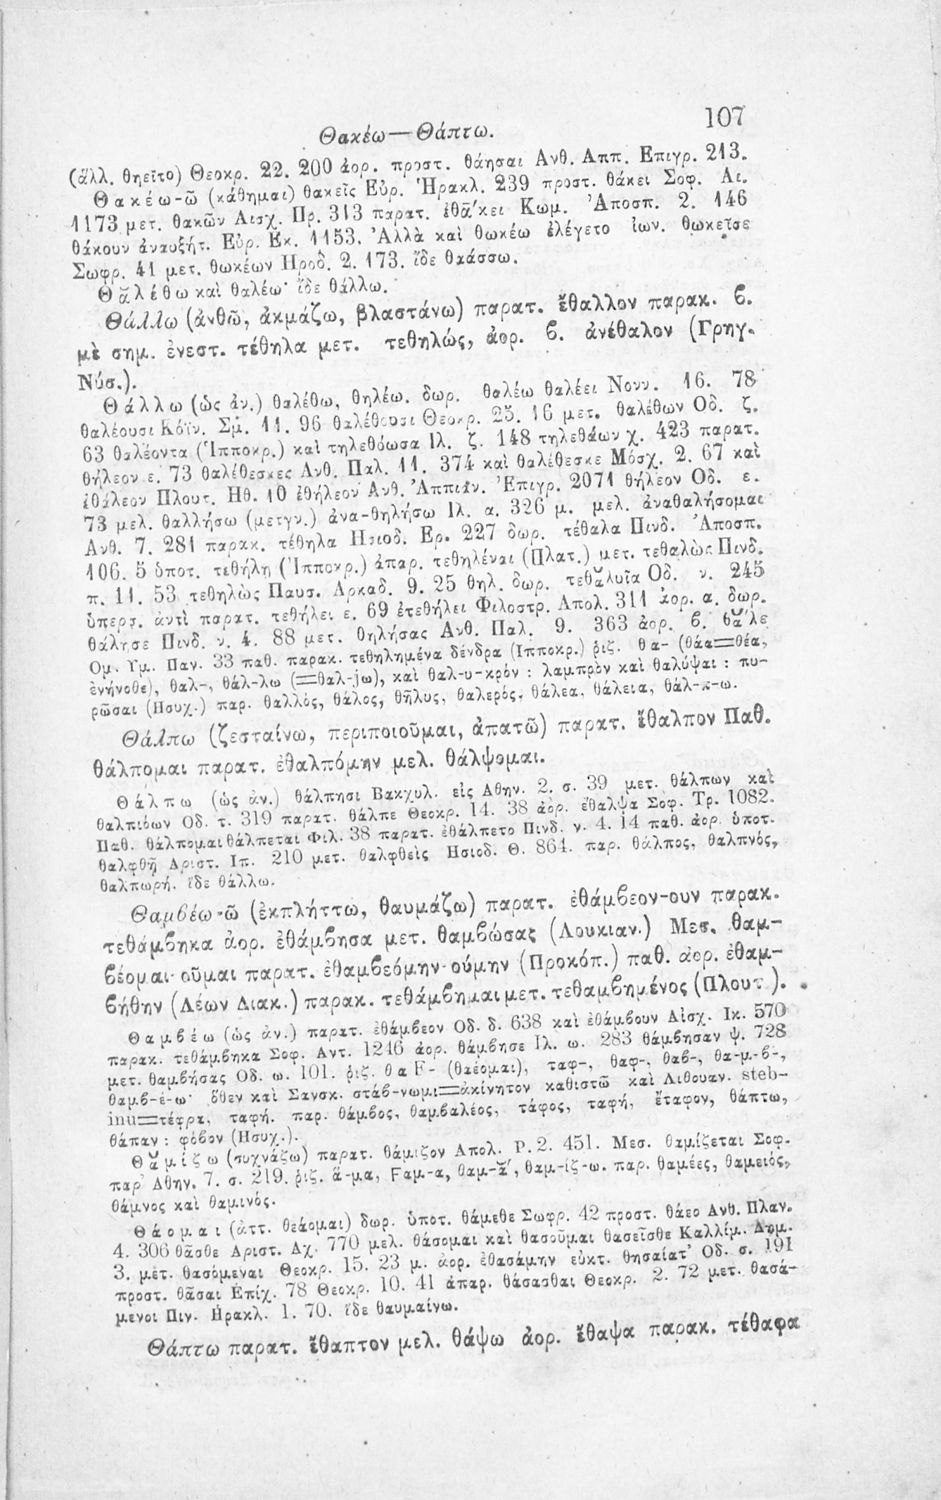 Θακέω—Θάπτω.
107
(ἄλλ. θηεῖτο) Θεοκρ. 22. 200 ἀορ. προστ. θάησαι Ανθ. Αππ. Επιγρ. 213.
Θακέω-ῶ (κάθημαι) θακεῖς Εὐρ. Ἡρακλ. 239 προστ. θάκει Σοφ. Αι.
1173 μετ. θακῶν Αισχ. Πρ. 313 παρατ. ἐθᾱ́κει Κωμ. Ἀποσπ. 2. 146
θάκουν ἀναυξήτ. Εὐρ. Εκ. 1153. Ἀλλὰ καὶ θωκέω ἐλέγετο ἰων. θωκεῖσε
Σωφρ. 41 μετ. θωκέων Ηροδ. 2. 173. ἴδε θαάσσω.
Θᾰλέθω καὶ θαλέω· ἴδε θάλλω.
Θάλλω (ἀνθῶ, ἀκμάζω, βλαστάνω) παρατ. ἔθαλλον παρακ. β.
μὲ σημ. ἐνεστ. τέθηλα μετ. τεθηλώς, ἀορ. β. ἀνέθαλον (Γρηγ.
Νύσ.).
Θάλλω (ὡς ἀν.) θαλέθω, θηλέω. δωρ. θαλέω θαλέει Νονν. 16. 78
θαλέουσι Κόϊν. Σμ. 11. 96 θαλέθουσι Θεοκρ. 25. 16 μετ. θαλέθων Οδ. ζ.
63 θαλέοντα (Ἱπποκρ.) καὶ τηλεθόωσα Ιλ. ζ. 148 τηλεθάων χ. 423 παρατ.
θήλεον ε. 73 θαλέθεσκες Ανθ. Παλ. 11. 374 καὶ θαλέθεσκε Μόσχ. 2. 67 καὶ
ἐθάλεον Πλουτ. Ηθ. 10 ἐθήλεον Ανθ. Ἀππεν. Ἐπιγρ. 2071 θήλεον Οδ. ε.
73 μελ. θαλλήσω (μετγν.) ἀνα-θηλήσω Ιλ. α. 326 μ. μελ. ἀναθαλήσομαι
Ανθ. 7. 281 παρακ. τέθηλα Ησιοδ. Ερ. 227 δωρ. τέθαλα Πινδ. Ἀποσπ.
106. 5 ὑποτ. τεθήλῃ (Ἱπποκρ.) ἀπαρ. τεθηλέναι (Πλατ.) μετ. τεθαλὼς Πινδ.
π. 11. 53 τεθηλὼς Παυσ. Αρκαδ. 9. 25 θηλ. δωρ. τεθᾰλυῖα Οδ. ν. 245
ὑπερσ. ἀντὶ παρατ. τεθήλει ε. 69 ἐτεθήλει Φιλοστρ. Απολ. 311 ἀορ. α. δωρ.
θάλησε Πινδ. ν. 4. 88 μετ. θηλήσας Ανθ. Παλ. 9. 363 ἀορ. β. θᾰ́λε
Ομ. Υμ. Παν. 33 παθ. παρακ. τεθηλημένα δένδρα (Ιπποκρ.) ῥιζ. θα- (θάα=θέα,
ἐνήνοθε), θαλ-, θάλ-λω (=θαλ-jω), καὶ θαλ-υ-κρόν : λαμπρὸν καὶ θαλύψαι : πυ-
ρῶσαι (Ησυχ.) παρ. θαλλός, θάλος, θῆλυς, θαλερός, θάλεα, θάλεια, θάλ-π-ω.
Θάλπω (ζεσταίνω, περιποιοῦμαι, ἀπατῶ) παρατ. ἔθαλπον Παθ.
θάλπομαι παρατ. ἐθαλπόμην μελ. θάλψομαι.
Θάλπω (ὡς ἀν.) θάλπησι Βακχυλ. εἰς Αθην. 2. σ. 39 μετ. θάλπων καὶ
θαλπιόων Οδ. τ. 319 παρατ. θάλπε Θεοκρ. 14. 38 ἀορ. ἔθαλψα Σοφ. Τρ. 1082.
Παθ. θάλπομαι θάλπεται Φιλ. 38 παρατ. ἐθάλπετο Πινδ. ν. 4. 14 παθ. ἀορ. ὑποτ.
θαλφθῇ Αριστ. Ιπ. 210 μετ. θαλφθεὶς Ησιοδ. Θ. 864. παρ. θάλπος, θαλπνός,
θαλπωρή. ἴδε θάλλω.
Θαμβέω-ῶ (ἐκπλήττω, θαυμάζω) παρατ. ἐθάμβεον-ουν παρακ.
τεθάμβηκα ἀορ. ἐθάμβησα μετ. θαμβώσας (Λουκιαν.) Μεσ. θαμ-
βέομαι-οῦμαι παρατ. ἐθαμβεόμην-ούμην (Προκόπ.) παθ. ἀορ. ἐθαμ-
βήθην (Λέων Διακ.) παρακ. τεθάμβημαι μετ. τεθαμβημένος (Πλουτ.).
Θαμβέω (ὡς ἀν.) παρατ. ἐθάμβεον Οδ. δ. 638 καὶ ἐθάμβουν Αἰσχ. Ικ. 570
παρακ. τεθάμβηκα Σοφ. Αντ. 1246 ἀορ. θάμβησε Ιλ. ω. 283 θάμβησαν ψ. 728
μετ. θαμβήσας Οδ. ω. 101. ῥιζ. θαF- (θαέομαι), ταφ-, θαφ-, θαβ-, θα-μ-β-,
θαμβ-έ-ω· ὅθεν καὶ Σανσκ. στάβ-νωμι=ἀκίνητον καθιστῶ καὶ Λιθουαν. steb-
inu=τέφρα, ταφή. παρ. θάμβος, θαμβαλέος, τάφος, ταφή, ἔταφον, θάπτω,
θάπαν : φόβον (Ησυχ.).
Θᾰμίζω (συχνάζω) παρατ. θάμιζον Απολ. Ρ. 2. 451. Μεσ. θαμίζεται Σοφ.
παρ' Αθην. 7. σ. 219. ῥιζ. ἅ-μα, Fαμ-α, θαμ-ᾰ́, θαμ-ίζ-ω. παρ. θαμέες, θαμειός,
θάμνος καὶ θαμινός.
Θάομαι (ἀττ. θεάομαι) δωρ. ὑποτ. θάμεθε Σωφρ. 42 προστ. θάεο Ανθ. Πλαν.
4. 306 θᾶσθε Αριστ. Αχ. 770 μελ. θάσομαι καὶ θασοῦμαι θασεῖσθε Καλλίμ. Δημ.
3. μετ. θασόμεναι Θεοκρ. 15. 23 μ. ἀορ. ἐθασάμην εὐκτ. θησαίατ' Οδ. σ. 191
προστ. θᾶσαι Επίχ. 78 Θεοκρ. 10. 41 ἀπαρ. θάσασθαι Θεοκρ. 2. 72 μετ. θασά-
μενοι Πιν. Ηρακλ. 1. 70. ἴδε θαυμαίνω.
Θάπτω παρατ. ἔθαπτον μελ. θάψω ἀορ. ἔθαψα παρακ. τέθαφα